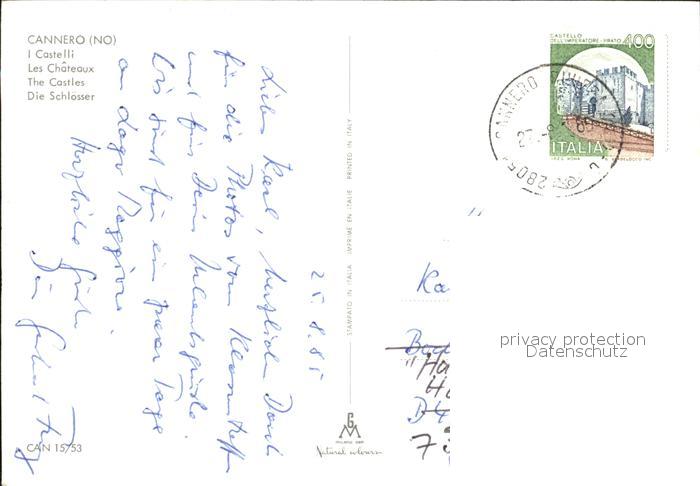 CANNERO (NO)
I Castelli
Les Châteaux
The Castles
Die Schlösser
25.8.85
Lieber Karl, herzlichen Dank
für die Photos vom Klassentreffen
und für Deine Urlaubsgrüße.
Wir sind für ein paar Tage
am Lago Maggiore.
Herzliche Grüße
Dein
CAN 15/53
STAMPATO IN ITALIA IMPRIMÉ EN ITALIE PRINTED IN ITALY
GM
Natural colours
CASTELLO
DELL'IMPERATORE-PRATO 400
ITALIA
CANNERO
2805
Ka
"Ha
privacy protection
Datenschutz